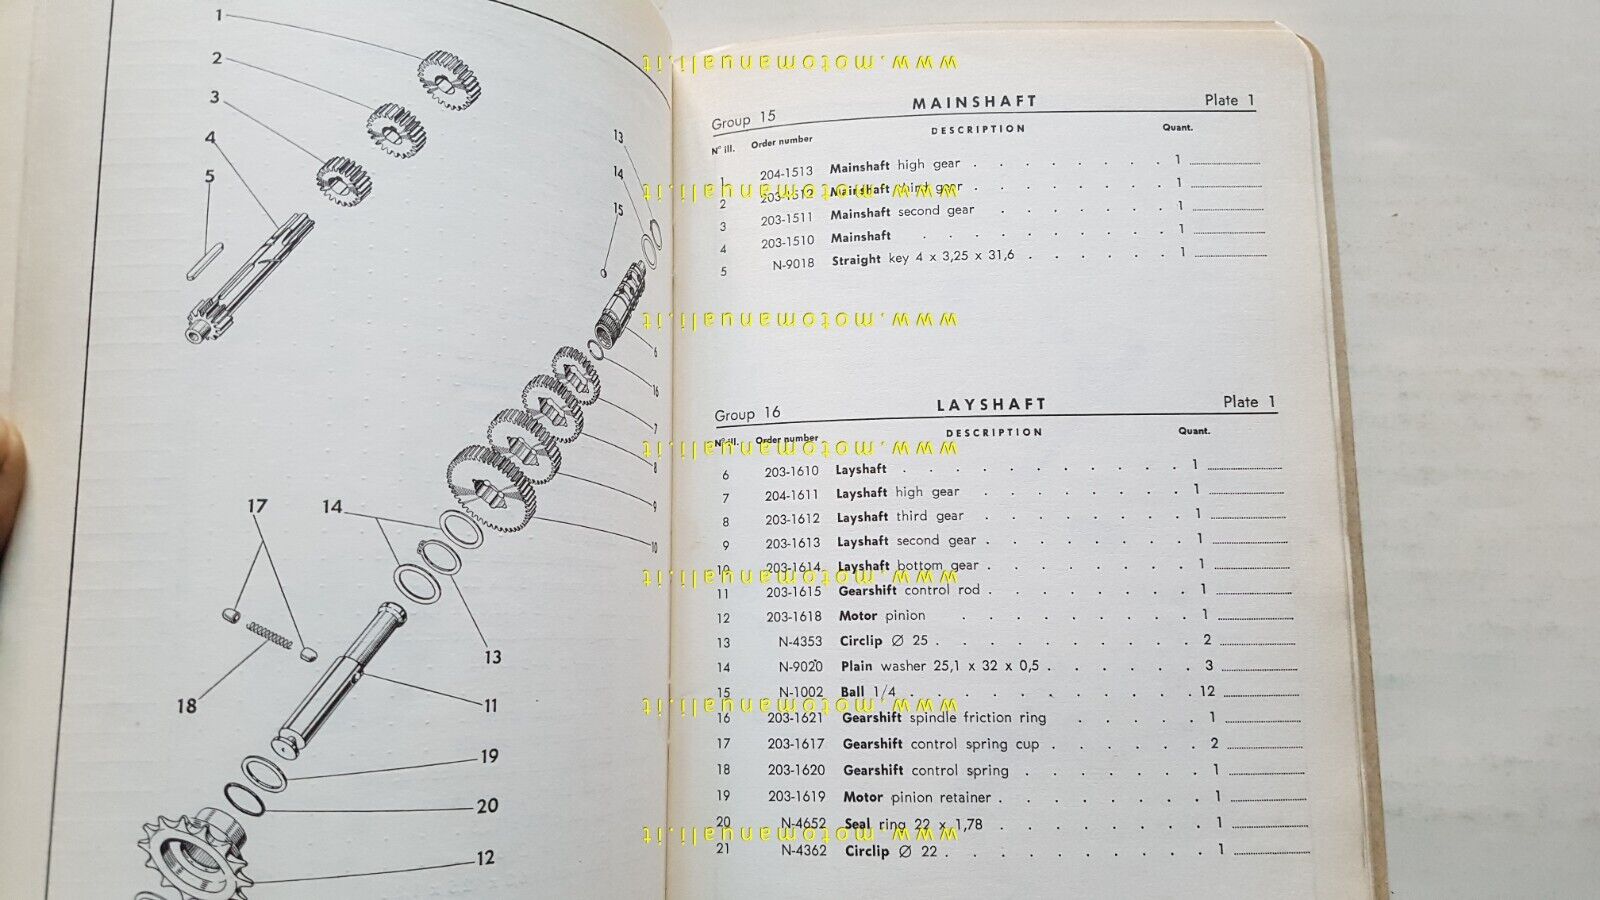 1
2
3
4
5
13
14
15
6
16
7
8
9
10
17
14
13
18
11
19
20
12
www.motomanuali.it
Group 15 MAINSHAFT Plate 1
N° ill. Order number DESCRIPTION Quant.
1 204-1513 Mainshaft high gear 1
2 203-1512 Mainshaft third gear 1
www.motomanuali.it
3 203-1511 Mainshaft second gear 1
4 203-1510 Mainshaft 1
5 N-9018 Straight key 4 x 3,25 x 31,6 1
www.motomanuali.it
Group 16 LAYSHAFT Plate 1
N° ill. Order number DESCRIPTION Quant.
www.motomanuali.it
6 203-1610 Layshaft 1
7 204-1611 Layshaft high gear 1
8 203-1612 Layshaft third gear 1
9 203-1613 Layshaft second gear 1
10 203-1614 Layshaft bottom gear 1
www.motomanuali.it
11 203-1615 Gearshift control rod 1
12 203-1618 Motor pinion 1
13 N-4353 Circlip Ø 25 2
14 N-9020 Plain washer 25,1 x 32 x 0,5 3
15 N-1002 Ball 1/4 12
www.motomanuali.it
16 203-1621 Gearshift spindle friction ring 1
17 203-1617 Gearshift control spring cup 2
18 203-1620 Gearshift control spring 1
19 203-1619 Motor pinion retainer 1
20 N-4652 Seal ring 22 x 1,78 1
www.motomanuali.it
21 N-4362 Circlip Ø 22 1